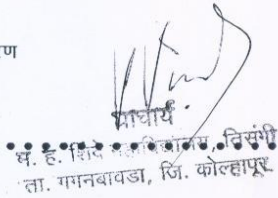 ण
प्राचार्य
ध. ह. शिंदे महाविद्यालय, तिसंगी
ता. गगनबावडा, जि. कोल्हापूर